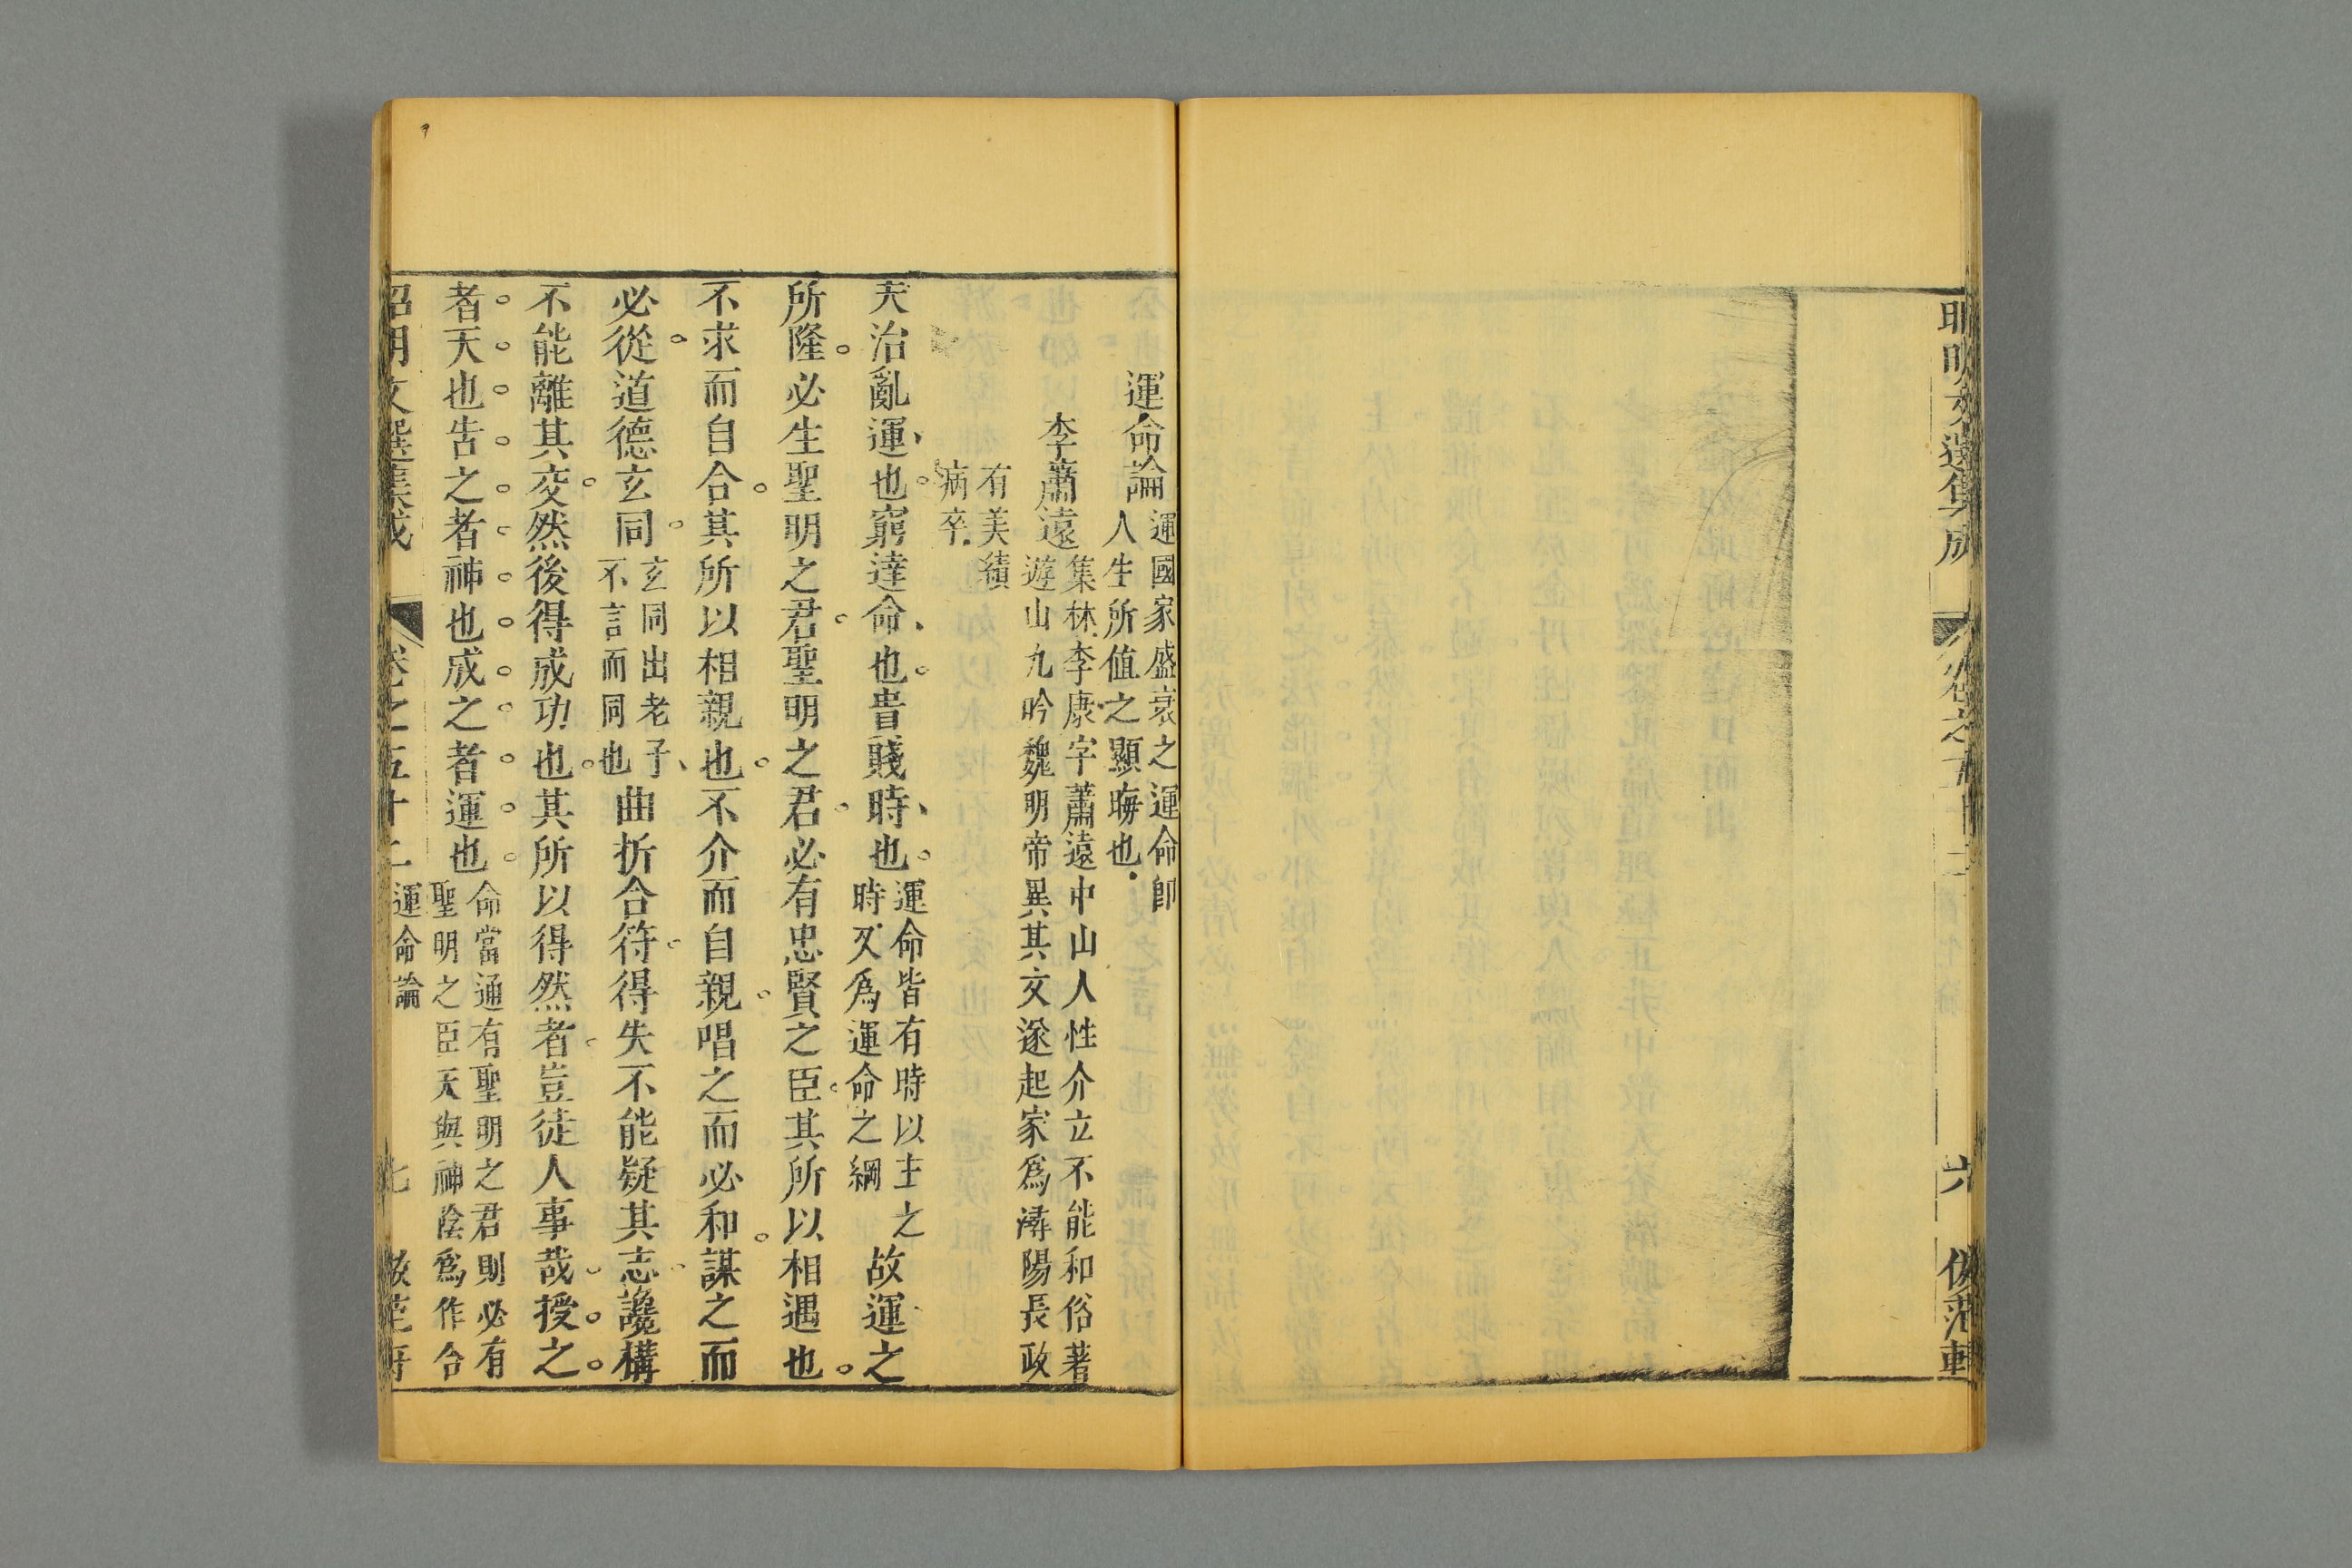 昭明文選集成
卷之五十二
六
倣范軒
運命論運國家盛衰之運命卽
人生所值之顯晦也
李蕭遠集林李康字蕭遠中山人性介立不能和俗著
遊山九吟魏明帝異其文遂起家爲潯陽長政
有美績
病卒
夫治亂運也窮達命也貴賤時也運命皆有時以主之
時又爲運命之綱故運之
所隆必生聖明之君聖明之君必有忠賢之臣其所以相遇也
不求而自合其所以相親也不介而自親唱之而必和謀之而
必從道德玄同玄同出老子
不言而同也曲折合符得失不能疑其志讒構
不能離其交然後得成功也其所以得然者豈徒人事哉授之
者天也告之者神也成之者運也命當通有聖明之君則必有
聖明之臣天與神陰爲作合
昭明文選集成
卷之五十二
運命論
七